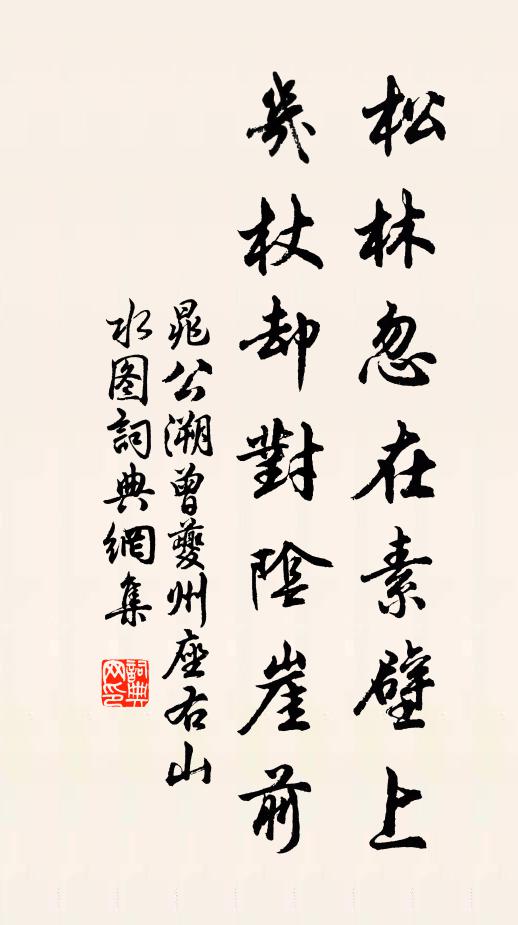 松林忽在素壁上
几杖却對陰崖前
晁公溯曾夔州座右山
水图詞典網集
詞典网印